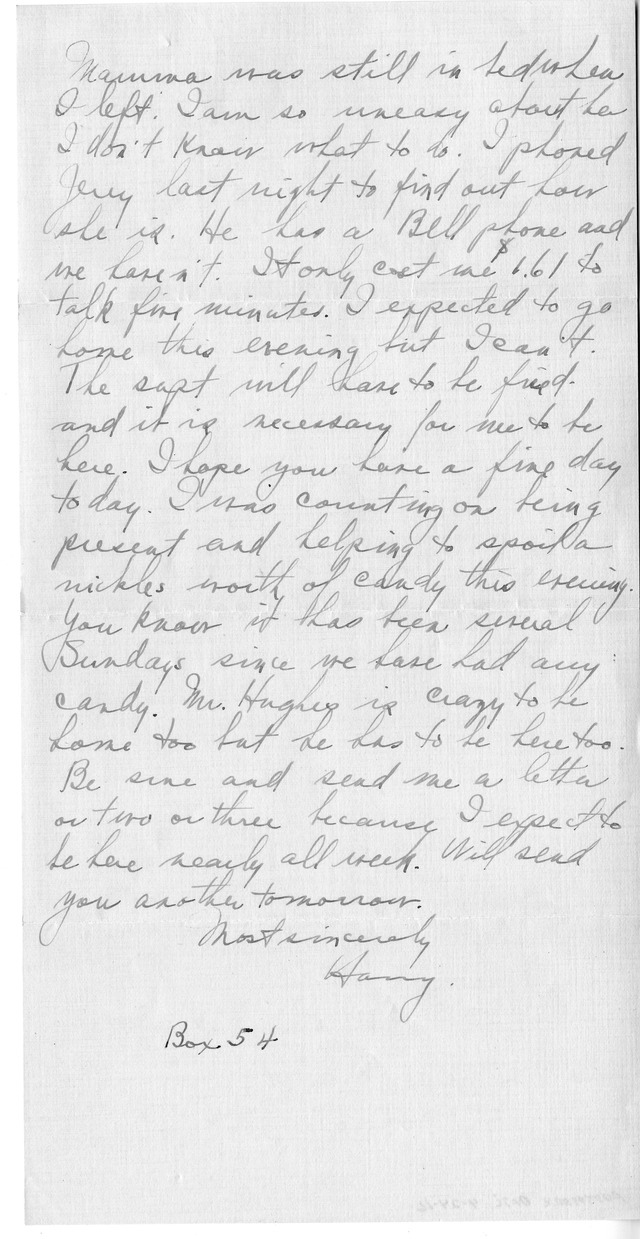 Mamma was still in bed when
I left. I am so uneasy about her
I don't know what to do. I phoned
Jerry last night to find out how
she is. He has a Bell phone and
we haven't. It only cost me $1.61 to
talk five minutes. I expected to go
home this evening but I can't.
The supt will have to be fired
and it is necessary for me to be
here. I hope you have a fine day
today. I was counting on being
present and helping to spoil a
nickles worth of candy this evening.
You know it has been several
Sundays since we have had any
candy. Mr. Hughes is crazy to be
home too but he has to be here too.
Be sure and send me a letter
or two or three because I expect to
be here nearly all week. Will send
you another tomorrow.
Most sincerely
Harry.
Box 54